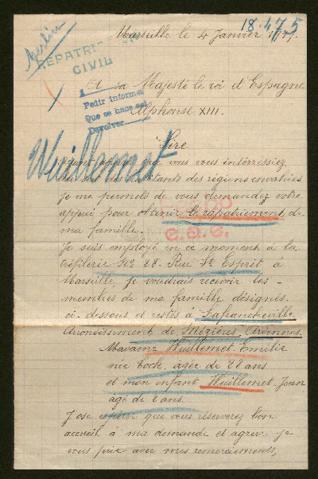 Marseille le 4 Janvier
18.475
Berlin
REPATRI
CIVIL
A sa Majesté le roi d'Espagne
Alphonse XIII.
Pedir informes
Que se hace saber
Devolver
Sire
Wuillemet
que vous vous intéressiez
des habitants des régions envahies
Je me permets de vous demander votre
appui pour obtenir le rapatriement de
ma famille.
Je suis employé en ce moment à la
Nº 28. Rue St Esprit à
Marseille, je voudrais recevoir les
membres de ma famille désignés
ci-dessous et restés à Lafrancheville
Arrondissement de Mézières Ardennes
Madame Wuillemet Emilie
née agée de 28 ans
et mon enfant Wuillemet Jean
âgé de 6 ans.
J'ose espérer que vous réserverez bon
accueil à ma demande et agréer je
vous prie avec mes remerciements,